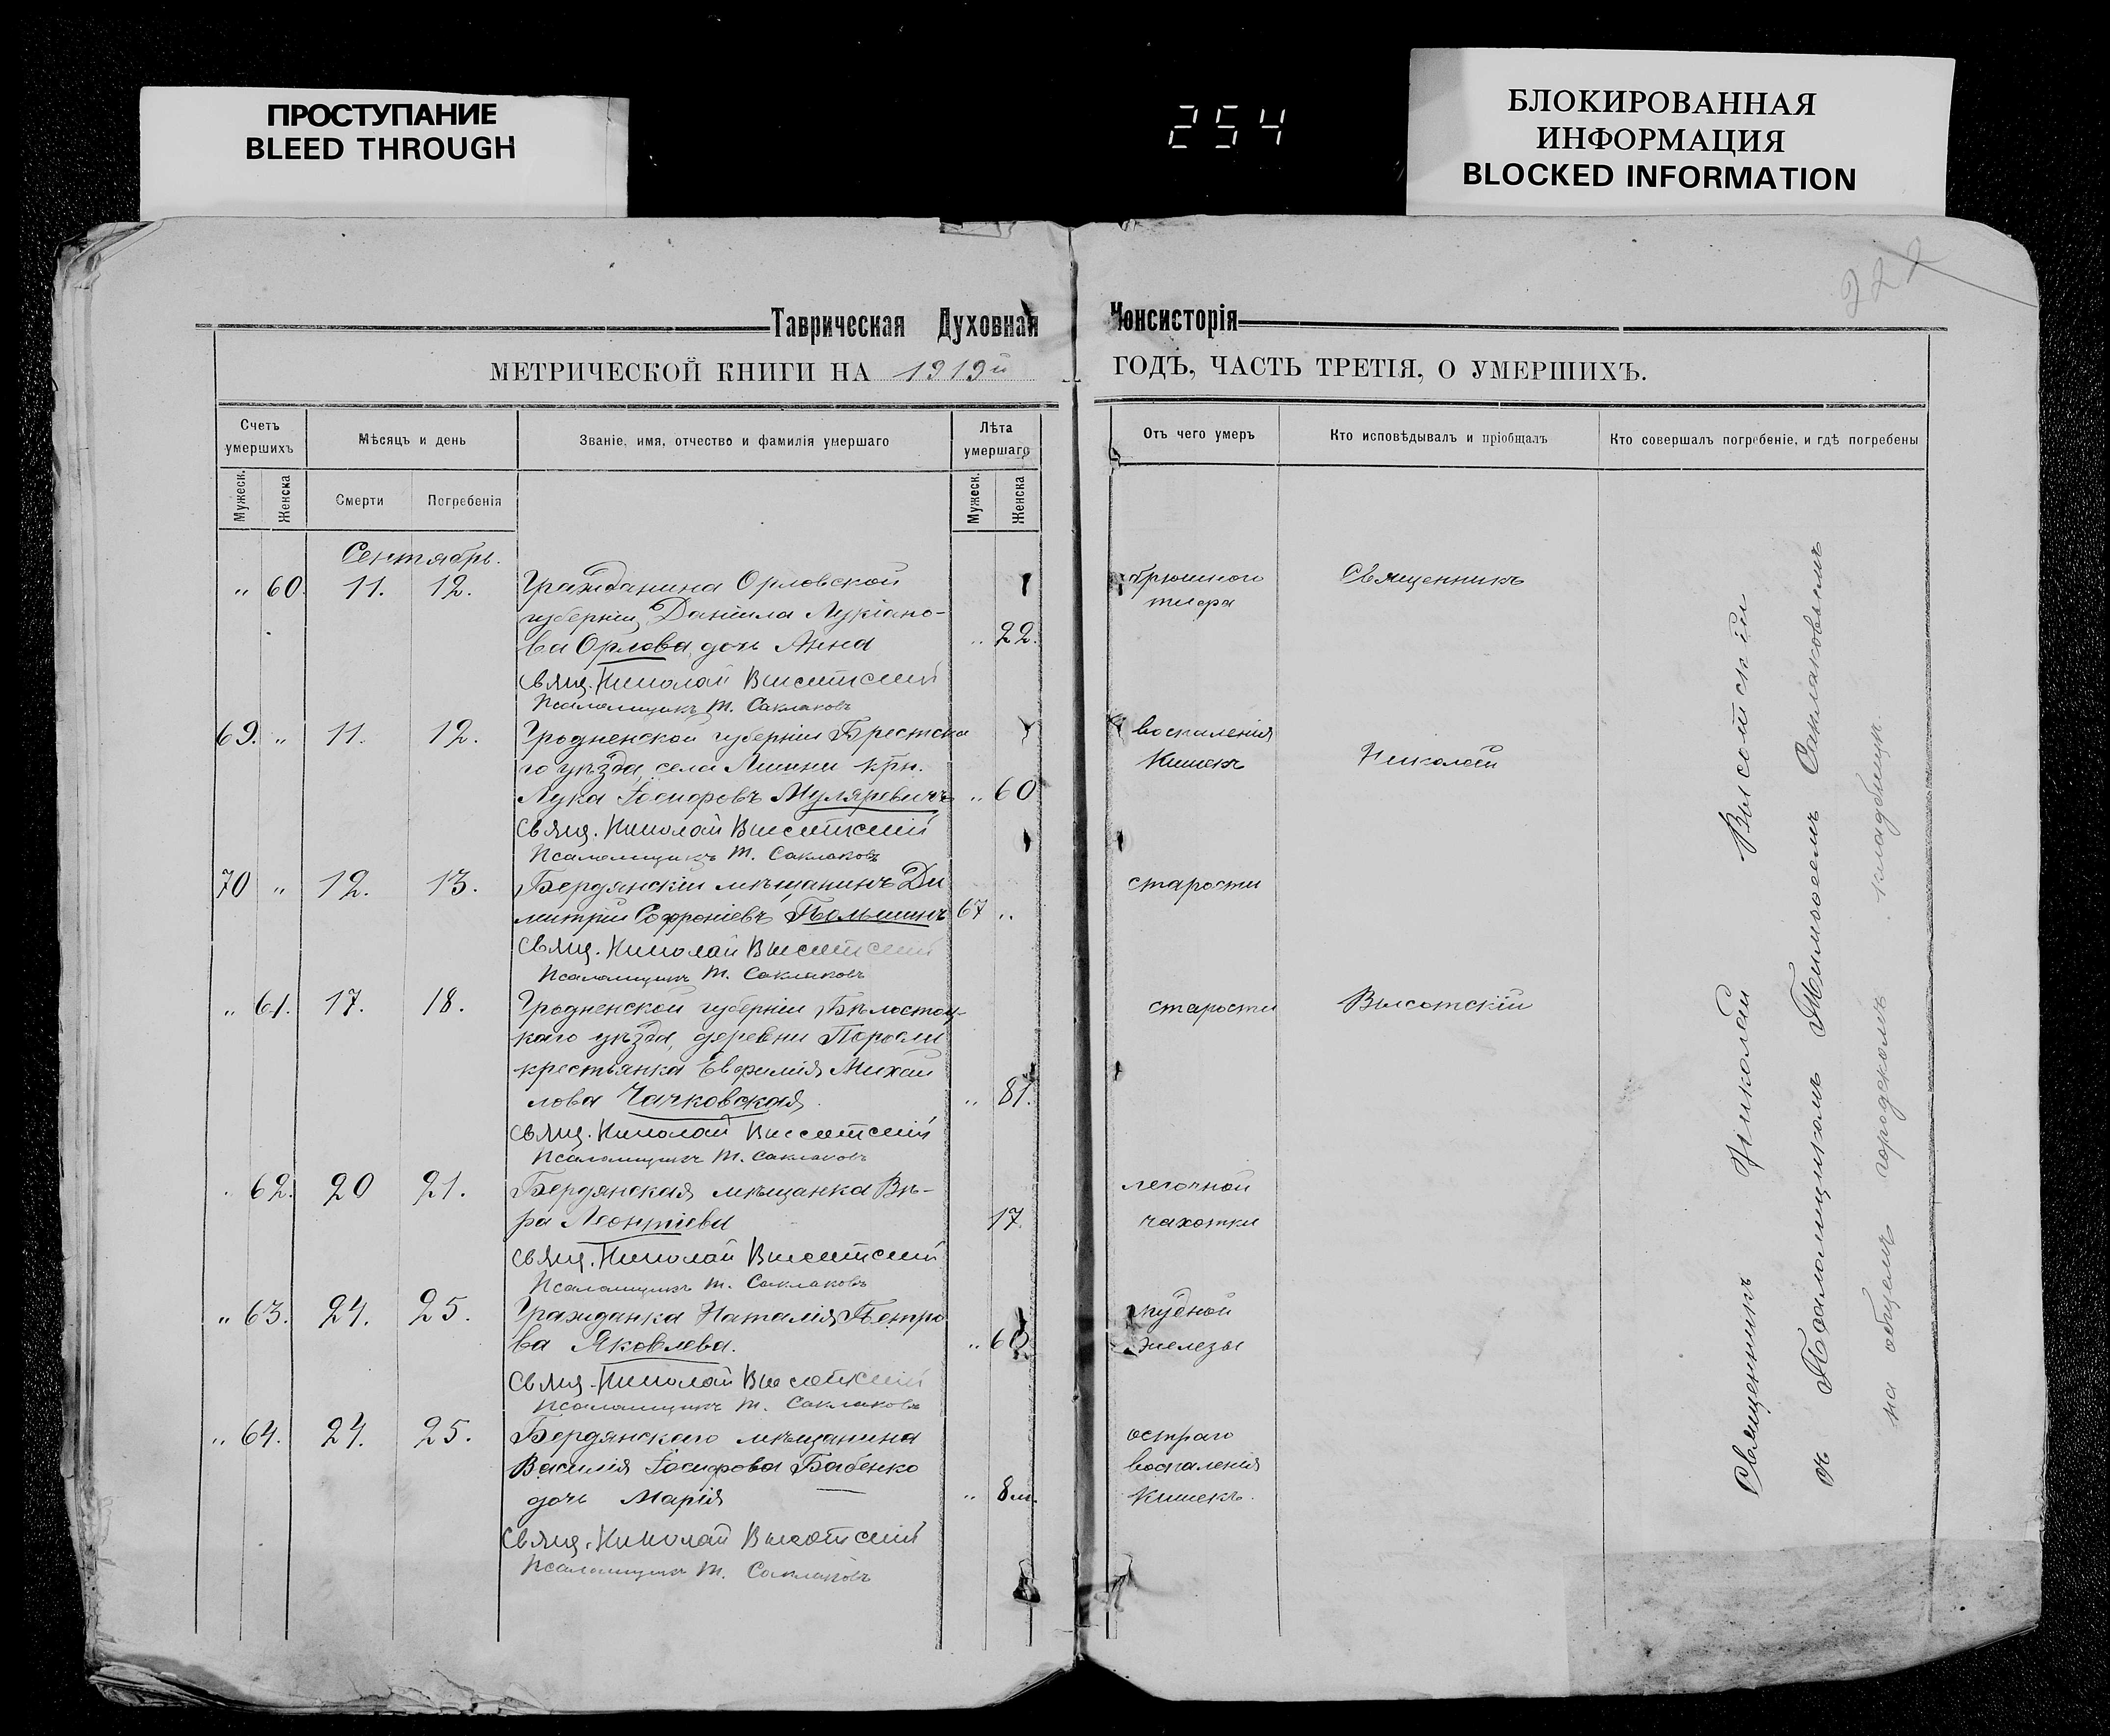 ПРОСТУПАНИЕ
BLEED THROUGH
254
БЛОКИРОВАННАЯ
ИНФОРМАЦИЯ
BLOCKED INFORMATION
222
Таврическая Духовная Консисторія
МЕТРИЧЕСКОЙ КНИГИ НА 1919й ГОДЪ, ЧАСТЬ ТРЕТІЯ, О УМЕРШИХЪ.
Счетъ умершихъ
Мѣсяцъ и день
Званіе, имя, отчество и фамилія умершаго
Лѣта умершаго
Отъ чего умеръ
Кто исповѣдывалъ и пріобщалъ
Кто совершалъ погребеніе, и гдѣ погребены
Мужеск. Женска Смерти Погребенія Мужеск. Женска
Сентябрь.
" 60. 11. 12. Гражданина Орловской брюшного Священникъ
губерніи, Даніила Лукіано- тифа
ва Орлова, дочь Анна " 22.
Свящ. Николай Высотскій
Псаломщикъ Т. Саклаковъ
69. " 11. 12. Гродненской губерніи Брестска воспаленія
го уѣзда, села крн. Кишекъ Николай
Лука Іосифовъ Муляревичъ " 60
Свящ. Николай Высотскій
Псаломщикъ Т. Саклаковъ
70 " 12. 13. Бердянскій мѣщанинъ Ди старости
митрій Софроніевъ 67 "
Свящ. Николай Высотскій
Псаломщикъ Т. Саклаковъ
" 61. 17. 18. Гродненской губерніи, Бѣлостоц- старости Высотскій
каго уѣзда, деревни Поросли
крестьянка Евфимія Михаи
лова Чачковская. " 81.
Свящ. Николай Высотскій
Псаломщикъ Т. Саклаковъ
62. 20 21. Бердянская мѣщанка Вѣ- легочной
ра Леонтіева 17. чахотки
Свящ. Николай Высотскій
Псаломщикъ Т. Саклаковъ
" 63. 24. 25. Гражданка Наталія Петро
ва Яковлева. " железы
Свящ. Николай Высотскій
Псаломщикъ Т. Саклаковъ
" 64. 24. 25. Бердянскаго мѣщанина остраго
Василія Іосифова Бабенко воспаленія
дочь Марія " 8 м. Кишекъ.
Свящ. Николай Высотскій
Псаломщикъ Т. Саклаковъ
Священникъ Николай Высотскій
съ Псаломщикомъ Тимофеемъ Саклаковымъ
на общемъ городскомъ кладбищѣ.